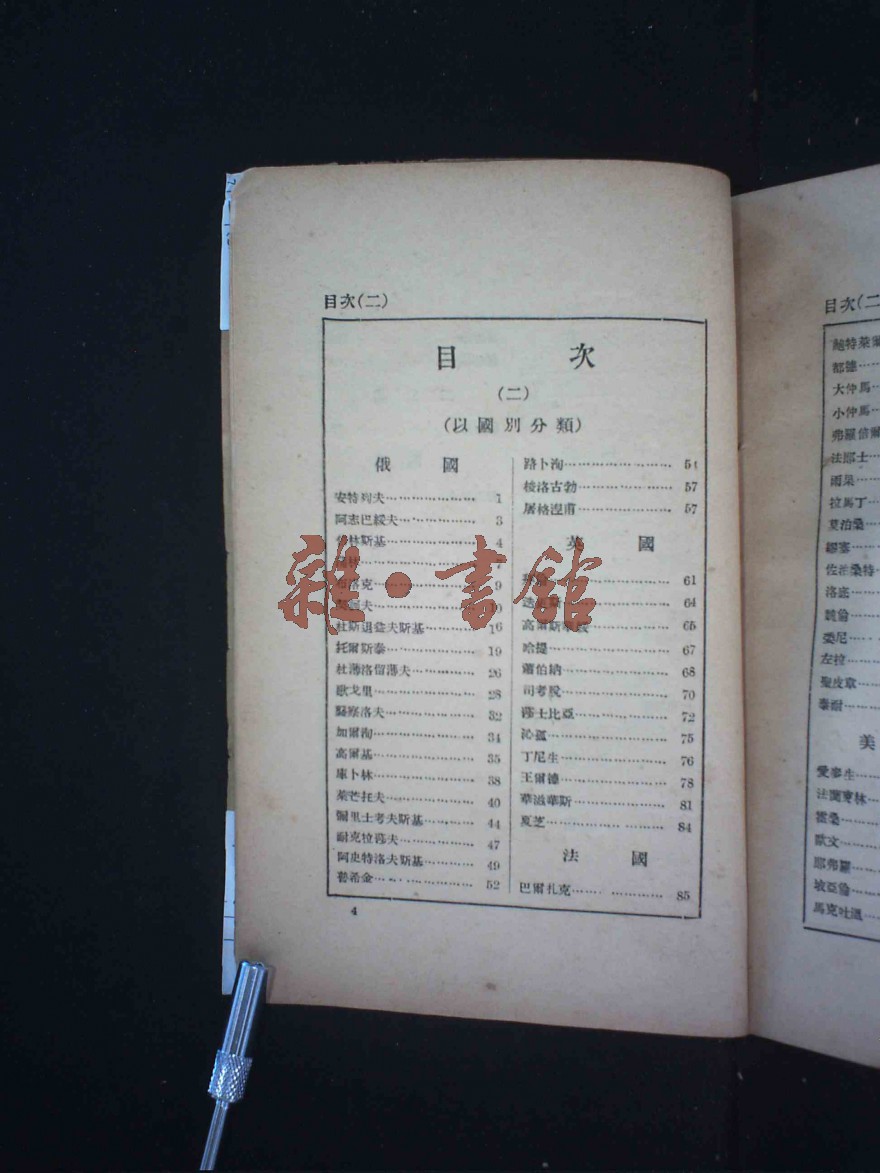 目次(二)
目 次
(二)
(以國別分類)
俄 國
安特列夫 1
阿志巴綏夫 3
林斯基 4
7
洛克 9
夫
杜斯退益夫斯基 16
托爾斯泰 19
杜薄洛留薄夫 26
歐戈里 28
醫察洛夫 32
加爾洵 34
高爾基 35
庫卜林 38
萊芒托夫 40
爾里士考夫斯基 44
耐克拉莎夫 47
阿史特洛夫斯基 49
普希金 52
路卜洵 54
梭洛古勃 57
屠格涅甫 57
英 國
61
64
高爾斯 65
哈提 67
蕭伯納 68
司考脫 70
莎士比亞 72
沁孤 75
丁尼生 76
王爾德 78
華滋華斯 81
夏芝 84
法 國
巴爾扎克 85
4
雜·書館
目次(二
鮑特萊爾
都德
大仲馬
小仲馬
弗羅倍爾
法郎士
雨果
拉馬丁
莫泊桑
繆塞
佐治桑特
洛底
魏倫
委尼
左拉
聖皮韋
泰耐
美
愛麥生
法蘭克林
霍桑
歐文
耶弗羅
坡亞倫
馬克吐溫